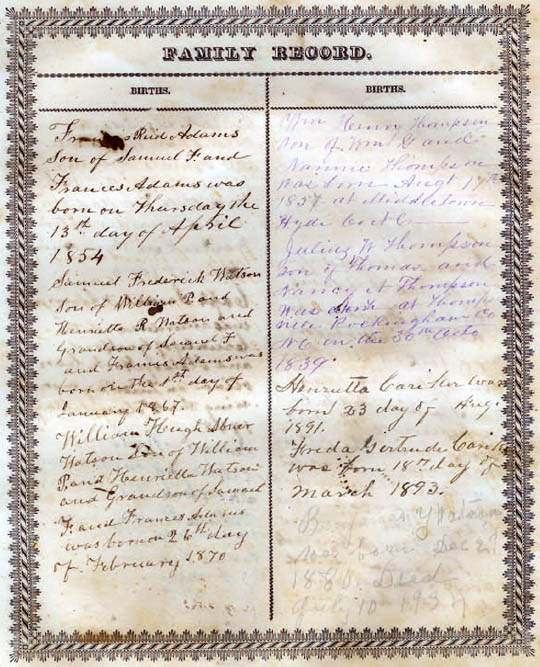 FAMILY RECORD.
BIRTHS.
Reid Adams
Son of Samuel F. and
Frances Adams was
born on Thursday the
13th day of April
1854
Samuel Frederick Watson
Son of William P and
Henrietta R Watson and
Grandson of Samuel F
and Francis Adams was
born on the 1st day of
January 1867.
William Hugh
Watson Son of William
P and Henrietta Watson
and Grandson of Samuel
F and Frances Adams
was born on 26th day
of February 1870
BIRTHS.
Wm Henry Thompson
son of Wm G and
Nannie Thompson
was born Augt 17th
1837 at Middletown
Hyde Co N C
Julius W Thompson
son of Thomas and
Nancy A Thompson
was born at Thomps
ville Rockingham Co
NC on the 30th Octo
1839.
Henrietta was
born 23 day of Aug.
1891.
Freda Gertrude
was born 18th day of
March 1893.
Watson
was born Dec 27
Died
10 193